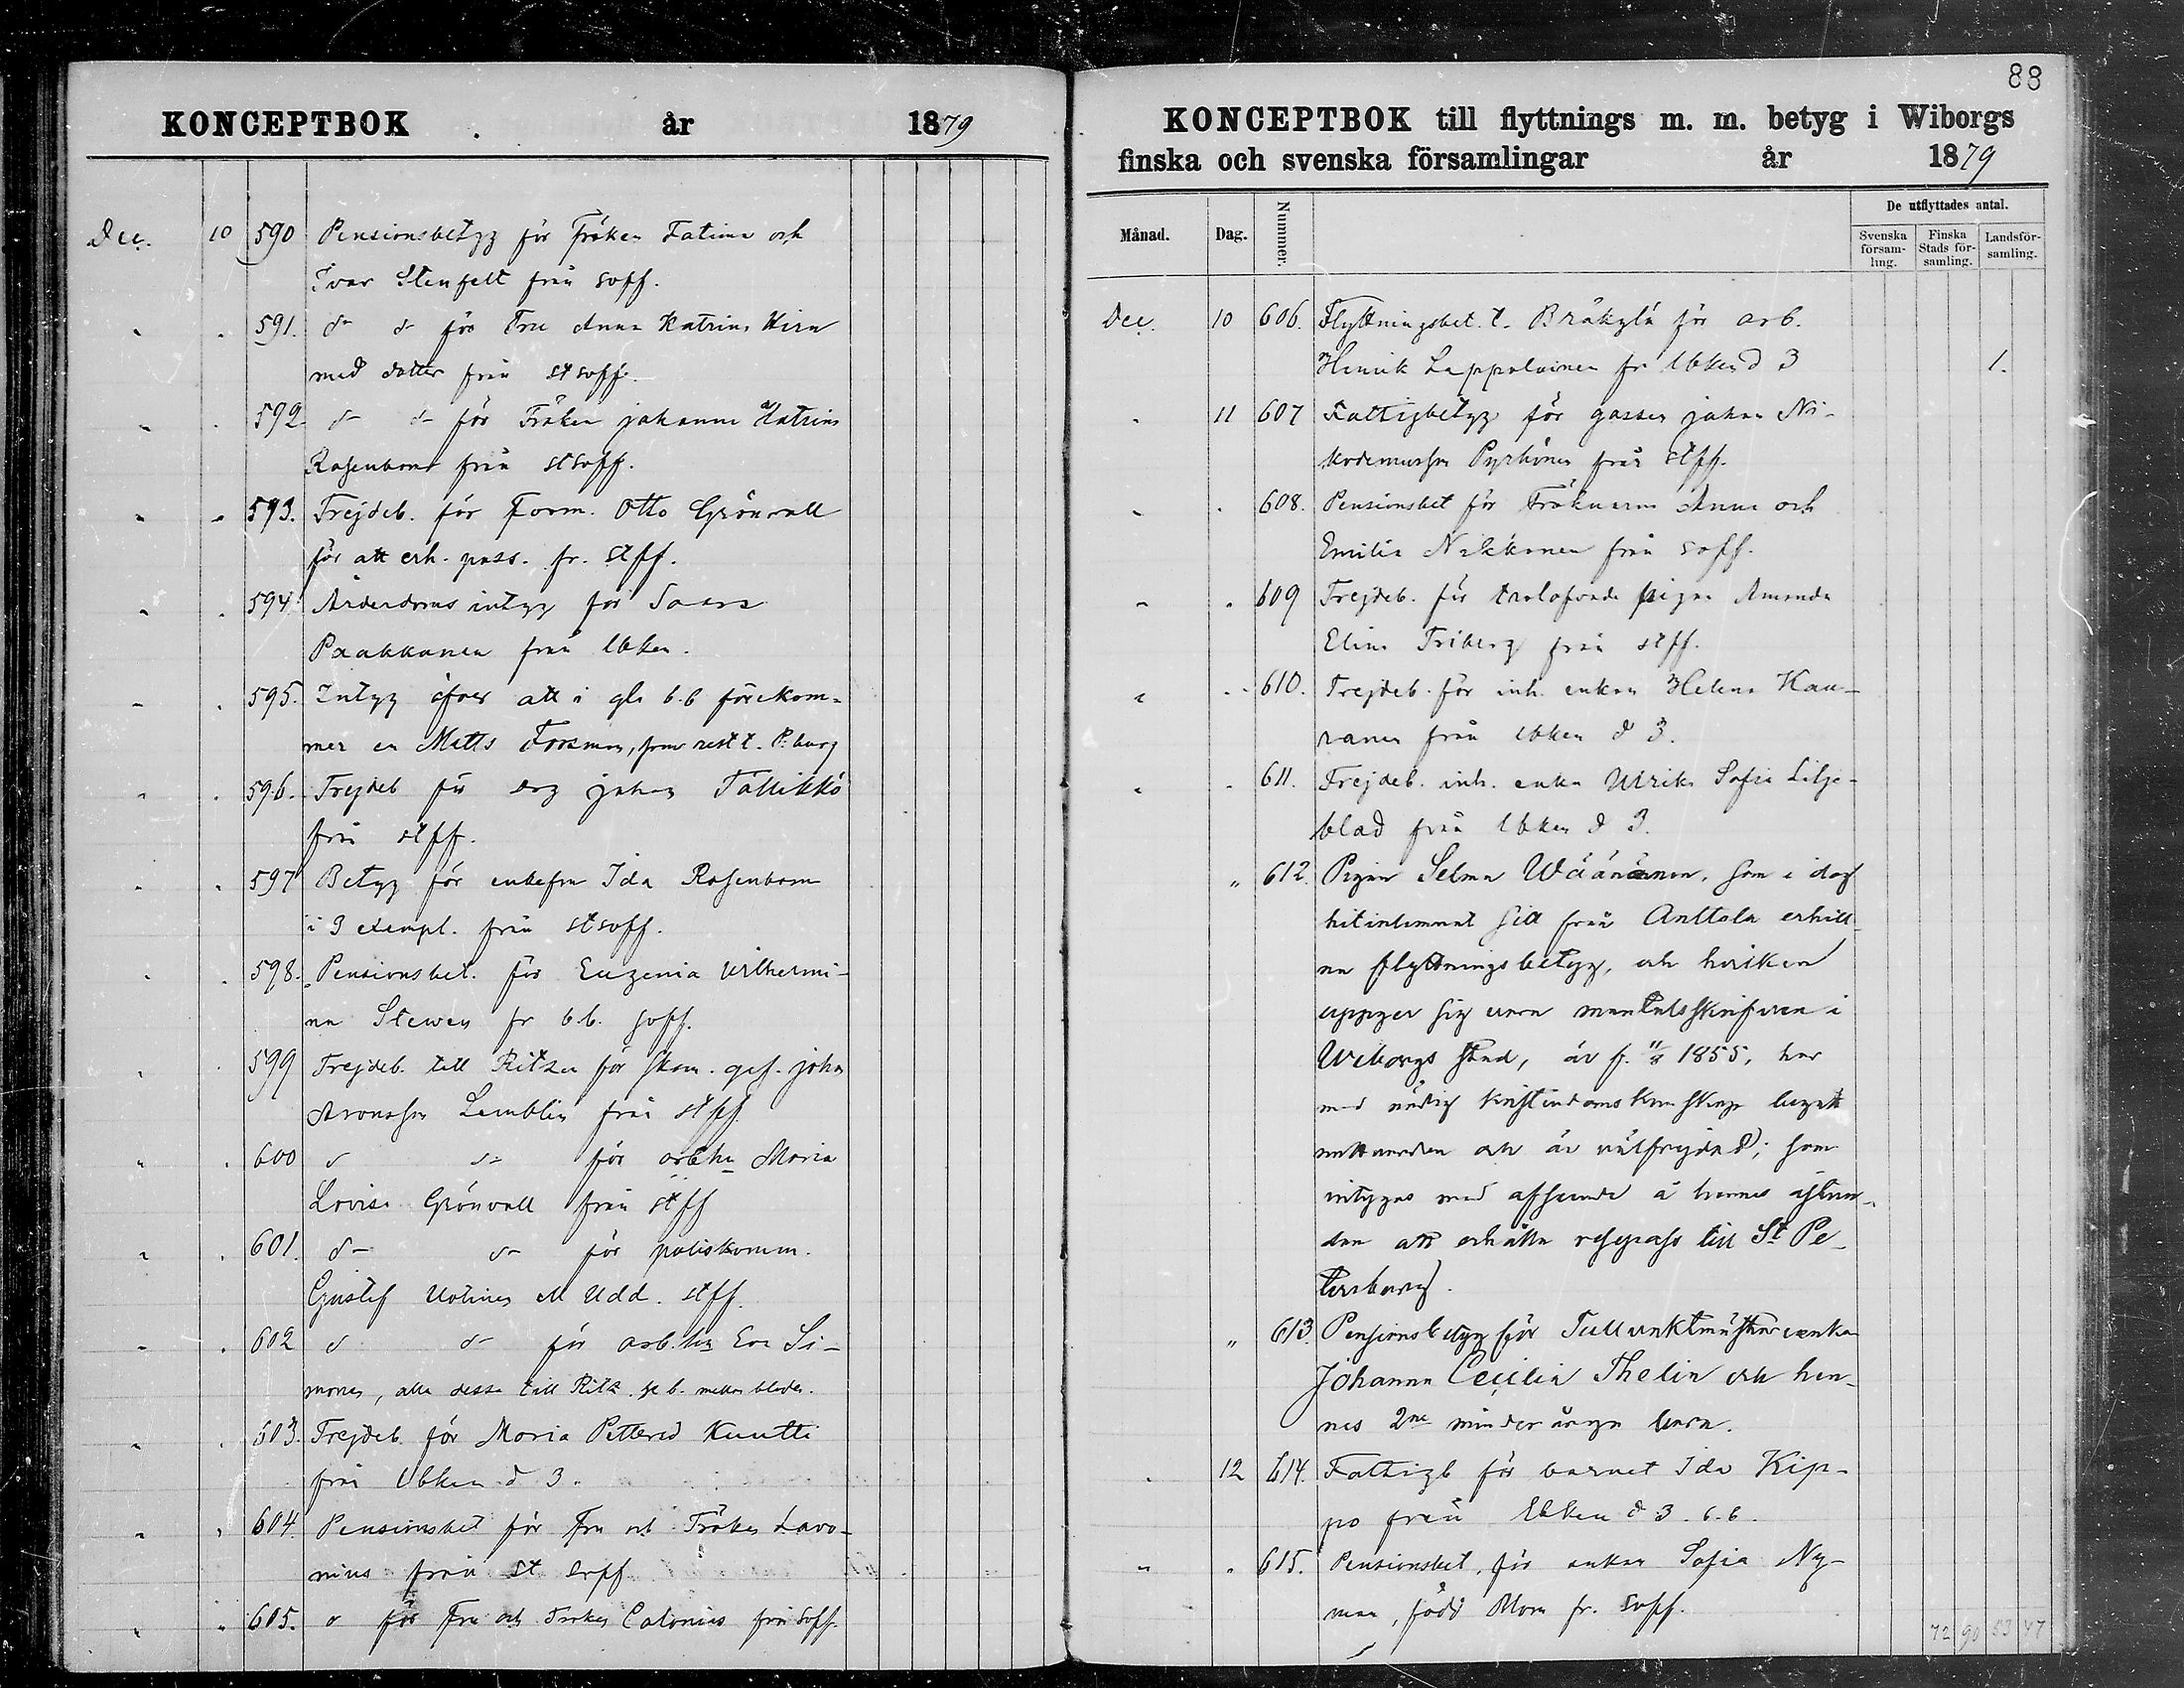 KONCEPTBOK år 1879
Dec. 10 590 Pensionsbetyg för Fröken Fatima och
Ivar Stenfelt från soff.
" " 591. d– d– för Fru Anna Katrina Hirn
med dotter från stsoff.
" " 592. d– d– för Fröken Johanna Katrina
Rosenbom från stsoff.
" " 593. Frejdeb. för Form. Otto Grönvall
för att erh. pass. fr. stff.
" " 594. Ålderdoms intyg för Saara
Paakkanen från lbken.
" " 595. Intyg öfver att i gla b.b förekom-
mer en Matts Forsman, som rest t. P:burg
" " 596. Frejdeb för drg Johan Tällikkö
från stff.
" " 597 Betyg för enkefru Ida Rosenbom
i 3 exempl. från stsoff.
" " 598. Pensionsbet. för Eugenia Wilhelmi-
na Stewen fr b.b. soff.
" " 599 Frejdeb. till Ritzen för skom. ges. Johan
Aronsson Lemblin från stff
" " 600 d d– för arbkn Maria
Lovisa Grönvall från stff
" " 601. d– d– för poliskomm.
Gustaf Uotinen M Udd. stff.
" " 602 d d– för arb.kn Eva Si-
monen, alla dessa till Ritz.
" " 603. Frejdeb. för Maria Pettersd Kuutti
från lbken d 3.
" " 604. Pensionsbet för Fru och Fröken Lavo-
nius från st
" " 605. d för Fru och Fröken Calonius från soff.
88
KONCEPTBOK till flyttnings m. m. betyg i Wiborgs
finska och svenska församlingar år 1879
Månad. Dag. Nummer. De utflyttades antal.
Svenska försam-ling. Finska Stads för-samling. Landsför-samling.
Dec. 10 606. Flyttningsbet. t. Bräkylä för arb.
Henrik Lappalainen fr lbken d 3 1.
" 11 607 Fattigbetyg för gossen Johan Ni-
kodemusson Pyrhönen från stff.
" " 608. Pensionsbet för Fröknarna Anna och
Emilia Nykkanen från soff.
" " 609 Frejdeb. för trolofvade pigan Amanda
Elina Friberg från stff.
" " 610. Frejdeb. för inh. enkan Helena Kau-
ranen från lbken d 3.
" " 611. Frejdeb. inh. enka Ulrika Sofia Lilje-
blad från lbken d 3.
" 612. Pigan Selma Wäänänen, som i dag
hitinlemnat sitt från Anttola erhåll-
na flyttningsbetyg, och hvilken
uppger sig vara mantalsskrifven i
Wiborgs stad, är f. 11/8 1855, har
med nödig kristendomskunskap begått
nattvarden och är välfrejdad; som
intygas med afseende å hennes åstun-
dan att erhålla respass till St Pe-
tersburg.
" 613. Pensionsbetyg för Tullvaktmästareenkan
Johanna Cecilia Thelin och hen-
nes 2ne minderåriga barn.
" 12 614. Fattigb för barnet Ida Kip-
po från lbken d 3. b.b.
" " 615. Pensionsbet. för enkan Sofia Ny-
man, född Mom fr. soff.
72 90 53 47